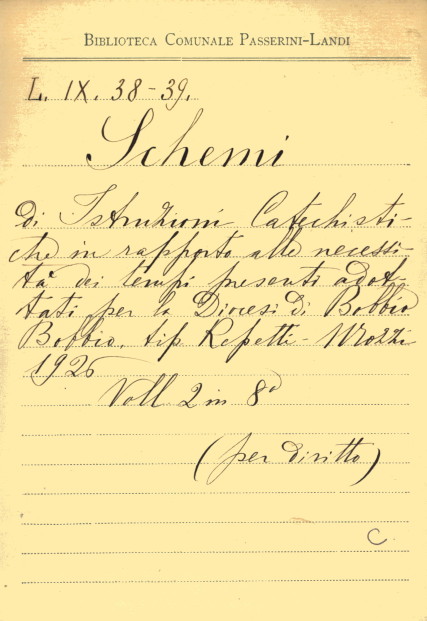 BIBLIOTECA COMUNALE PASSERINI-LANDI
L. IX. 38-39.
Schemi
di Istruzioni Catechisti-
che in rapporto alle necessi-
tà dei tempi presenti adot-
tati per la Diocesi di Bobbio
Bobbio, tip. Repetti-Mozzi
1926
Voll 2 in 8°
(per diritto)
C.